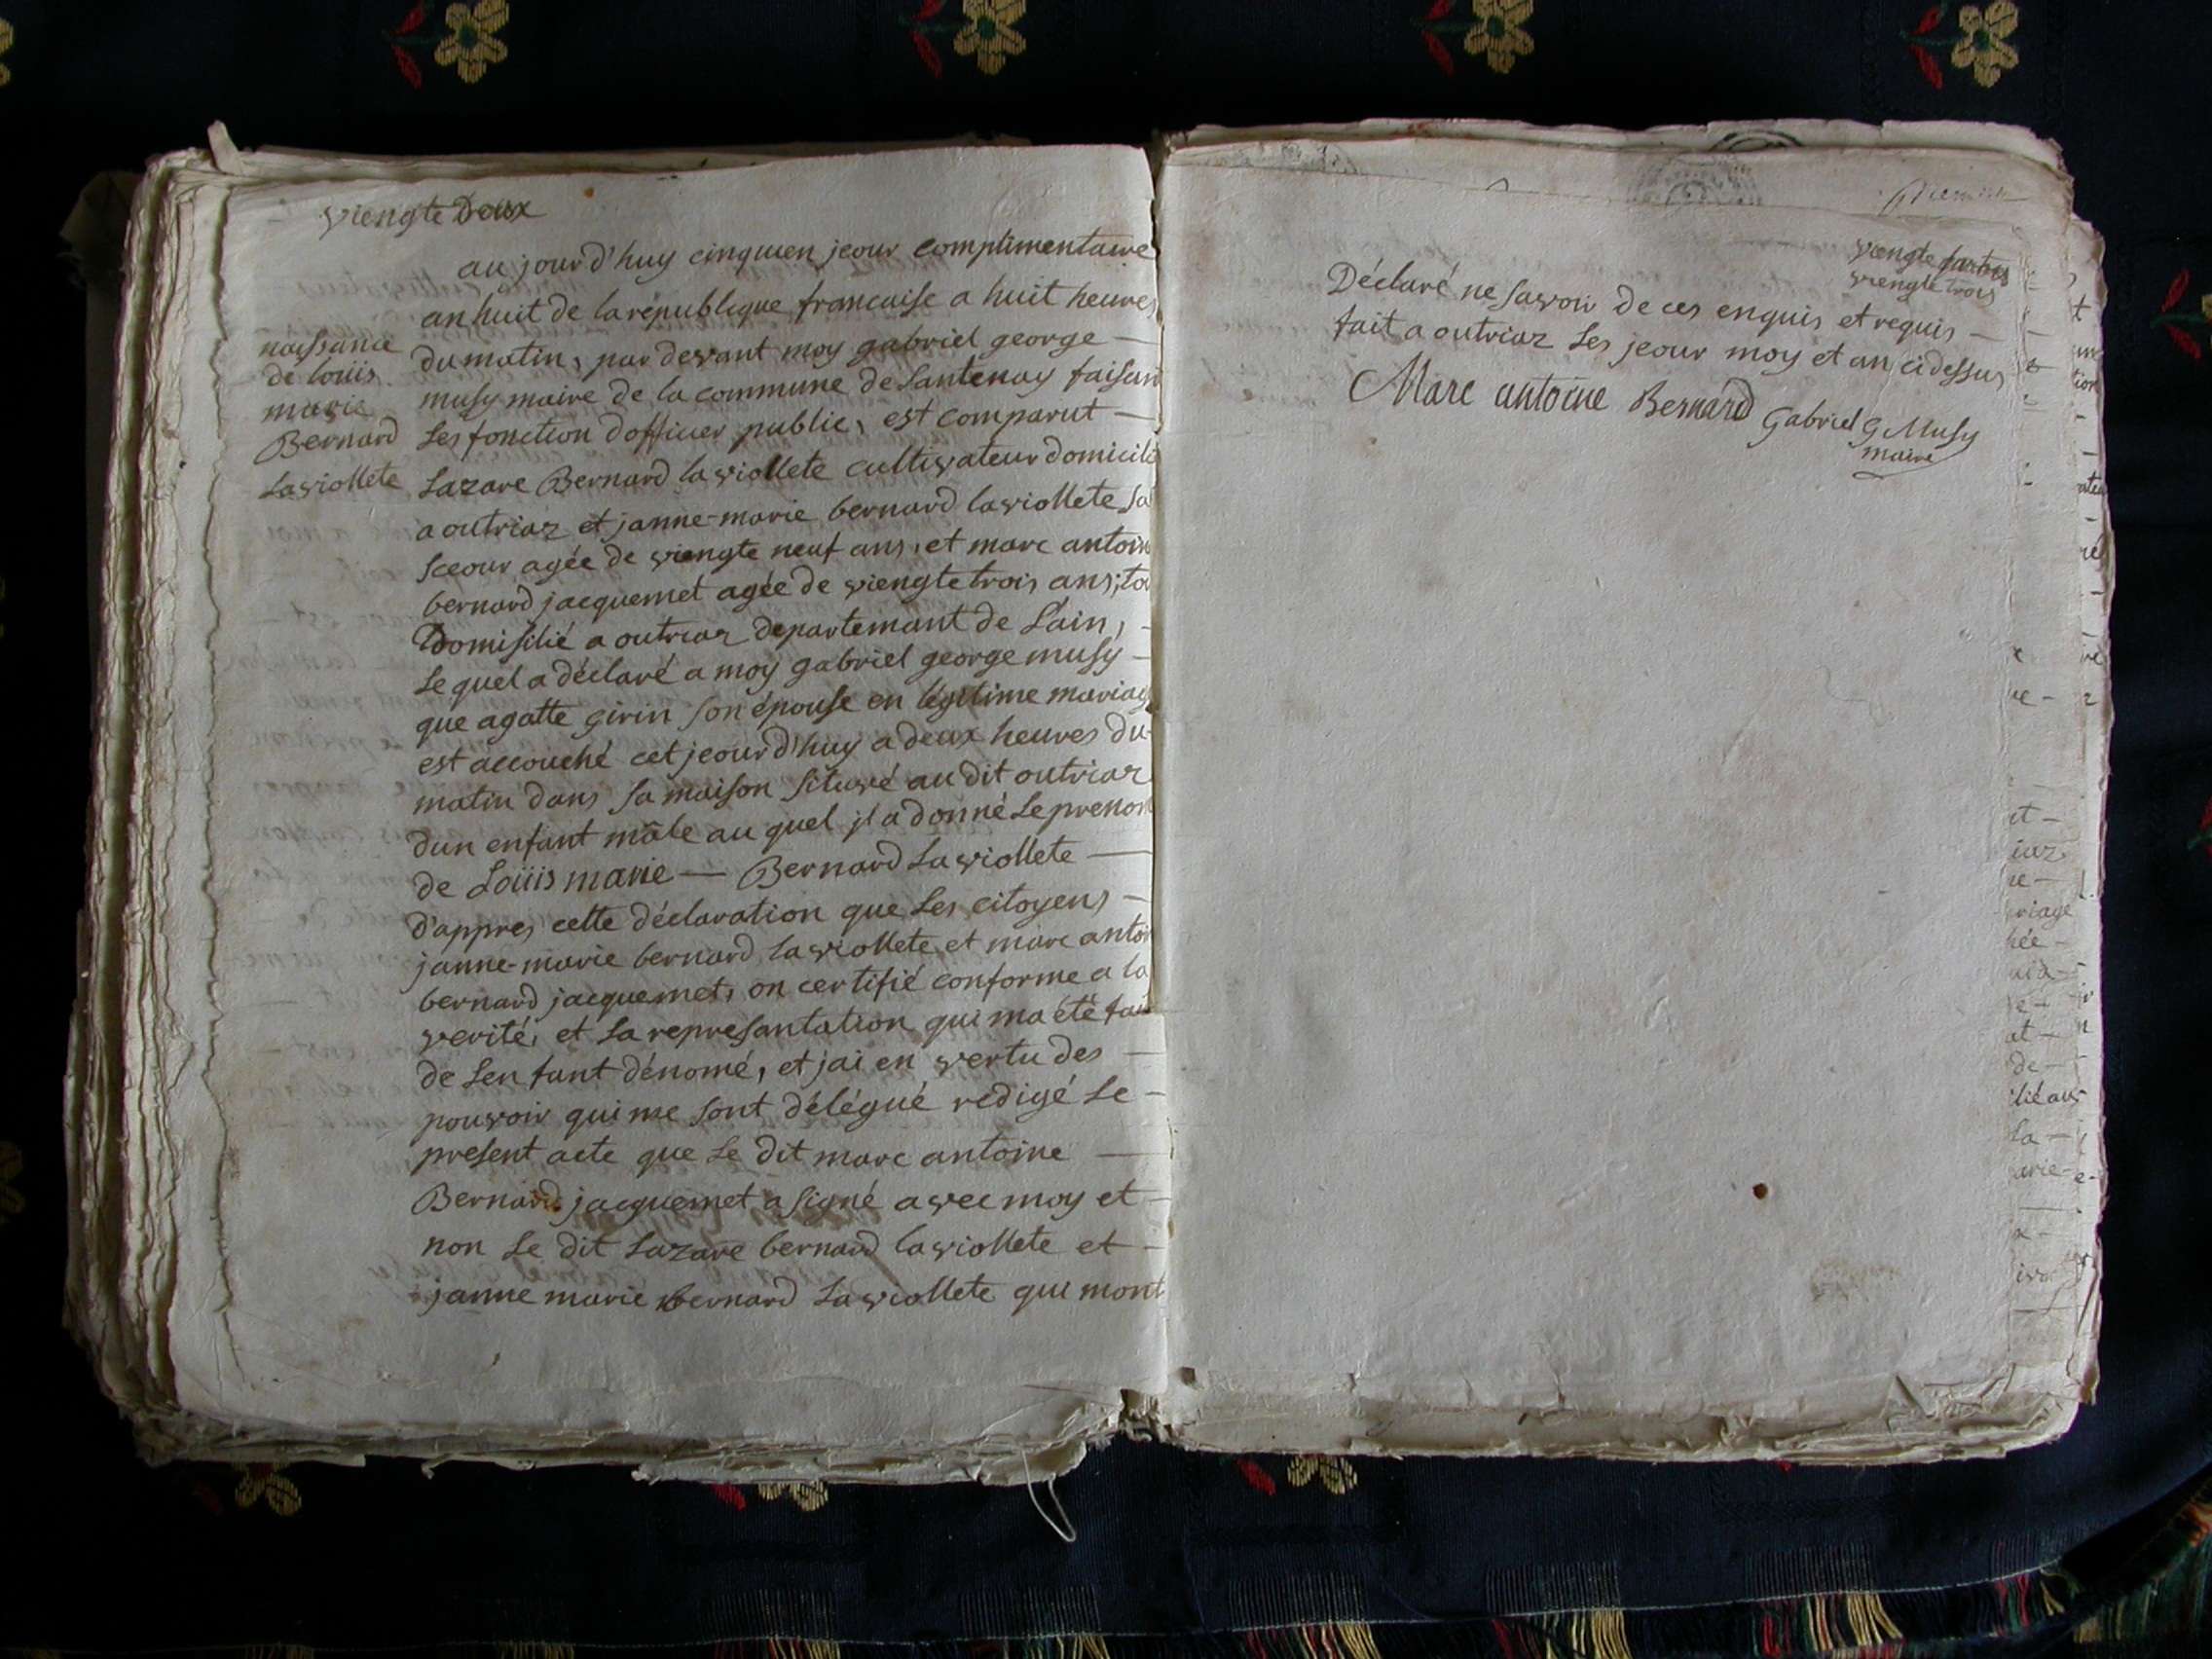 viengte Deux
au jourd'huy cinquien jeour complimentaire
an huit de la république francaise a huit heures
du matin, par devant moy gabriel george
musy maire de la commune de Lantenay faisant
Les fonction d'officier public, est comparut
naissance
de loüis
marie
Bernard
Laviollete
Lazare Bernard laviollete cultivateur domicilié
a outriaz et janne-marie bernard laviollete sa
sceour agée de viengte neuf ans, et marc antoine
bernard jacquemet agée de viengte trois ans,
Domisilié a outriaz departemant de L'ain,
Le quel a déclaré a moy gabriel george musy
que agatte girin son épouse en légitime mariage
est accouché cet jeour d'huy a deux heures du
matin dans sa maison situvé au dit outriaz
dun enfant mâle au quel jl a donné Le prenom
de Loüis marie — Bernard Laviollete
d'appres cette déclaration que Les citoyens
janne-marie bernard Laviollete et marc antoi
bernard jacquemet, on certifié conforme a la
verité, et La represantation qui ma été fait
de Lenfant dénomé, et jai en vertu des
pouvoir qui me sont délégué redigé Le
present acte que Le dit marc antoine
Bernard jacquemet a signé avec moy et
non Le dit Lazare bernard laviollete et
janne marie bernard Laviollete qui mont
viengte
viengte trois
Déclaré ne savoir de ces enquis et requis
fait a outriaz Les jeour moy et an ci dessus
Marc antoine Bernard Gabriel G Musy
maire